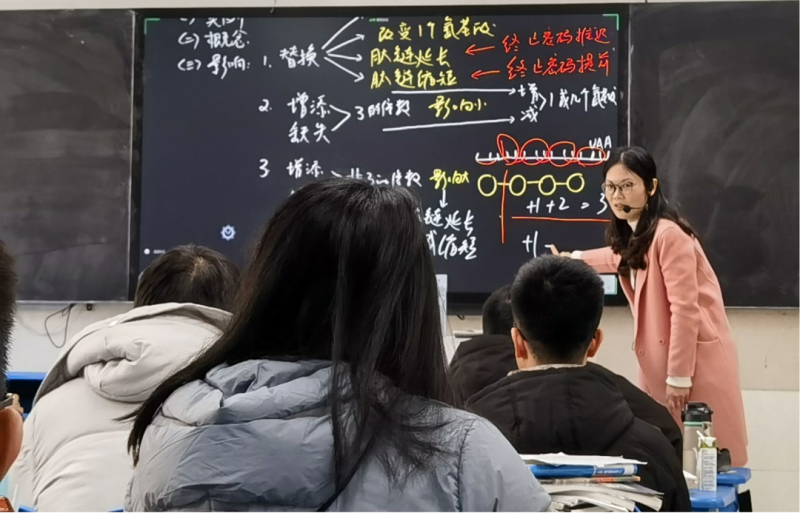 (二) 概念:
(三) 影响: 1. 替换
改变1个氨基酸
肽链延长 ← 终止密码推迟
肽链缩短 ← 终止密码提前
2. 增添
缺失
3的倍数 影响小
增
减
1或几个氨基酸
3 增添
非3的倍数 影响大
链延长
缩短
UAA
+1+2=3
+1-